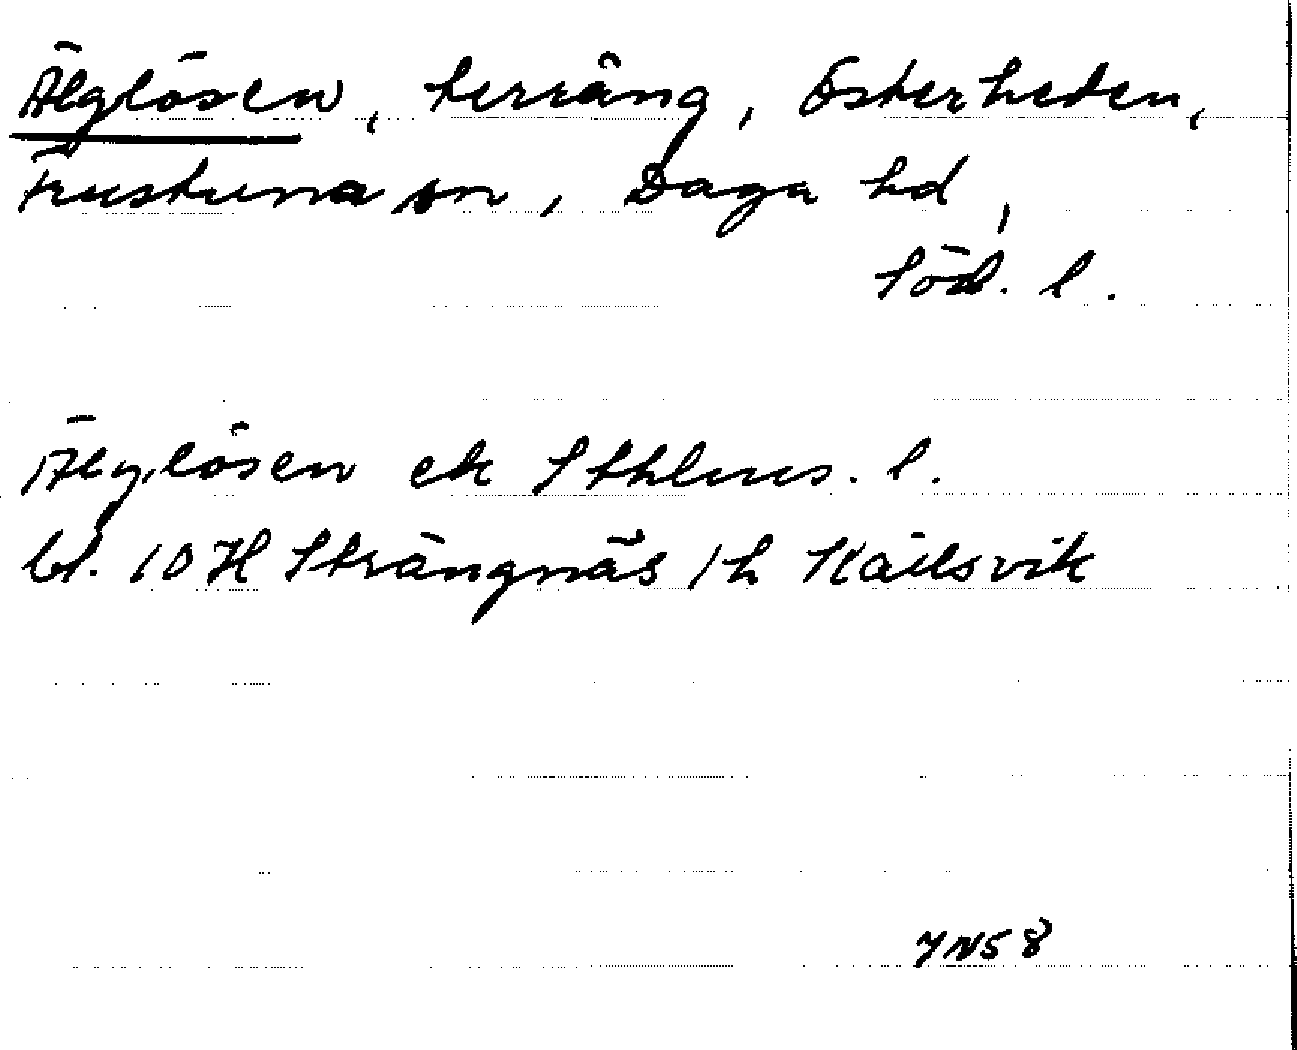 Älglösen, terräng, Österheden,
Frustuna sn, Daga hd,
Söd. l.
Älglösen ek Sthlms. l.
bl. 10 H Strängnäs 1h Källsvik
YNS 8